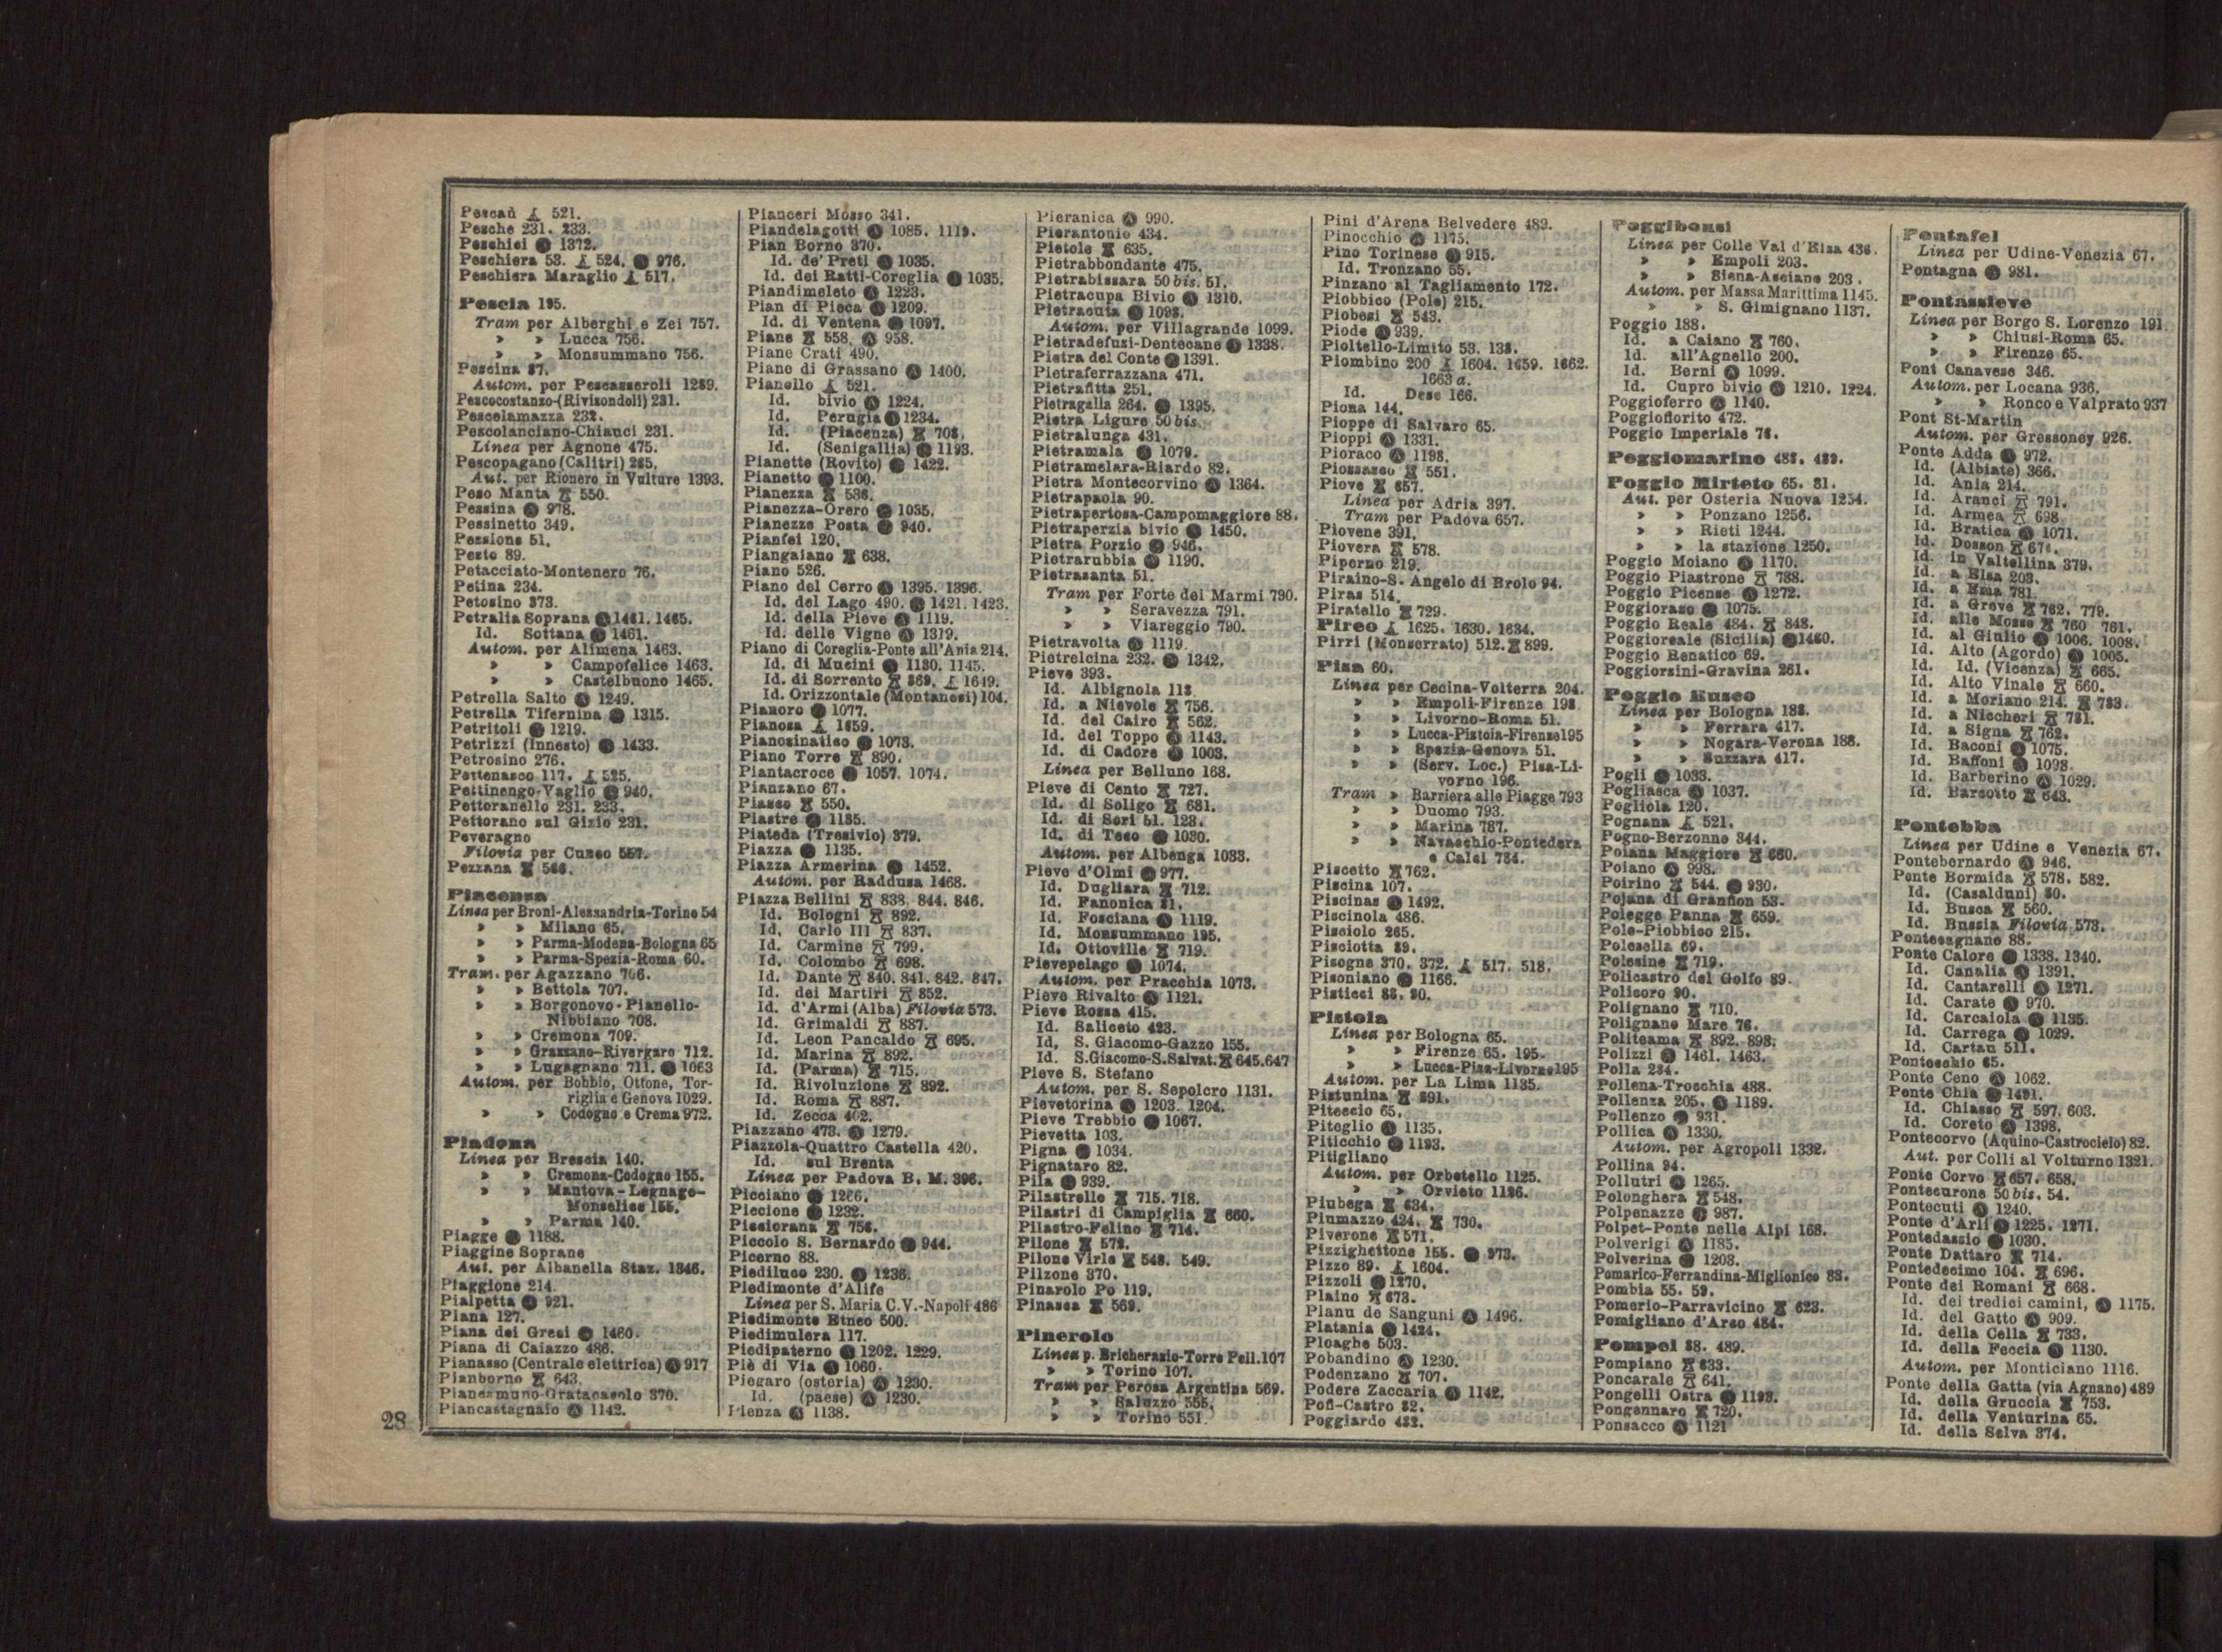 Pescaù 521.
Pesche 231. 233.
Peschici 1372.
Peschiera 53. 524. 976.
Peschiera Maraglio 517.
Pescia 195.
Tram per Alberghi e Zei 757.
» » Lucca 756.
» » Monsummano 756.
Pescina 87.
Autom. per Pescasseroli 1289.
Pescocostanzo-(Rivisondoli) 231.
Pescolamazza 232.
Pescolanciano-Chiauci 231.
Linea per Agnone 475.
Pescopagano (Calitri) 265.
Aut. per Rionero in Vulture 1393.
Peso Manta 550.
Pessina 978.
Pessinetto 349.
Pessione 51.
Pesto 89.
Petacciato-Montenero 76.
Petina 234.
Petosino 373.
Petralia Soprana 1461. 1465.
Id. Sottana 1461.
Autom. per Alimena 1463.
» » Campofelice 1463.
» » Castelbuono 1465.
Petrella Salto 1249.
Petrella Tifernina 1315.
Petritoli 1219.
Petrizzi (Innesto) 1433.
Petrosino 276.
Pettenasco 117. 525.
Pettinengo-Vaglio 940.
Pettoranello 231. 233.
Pettorano sul Gizio 231.
Peveragno
Filovia per Cuneo 557.
Pezzana 566.
Piacenza
Linea per Broni-Alessandria-Torino 54
» » Milano 65.
» » Parma-Modena-Bologna 65
» » Parma-Spezia-Roma 60.
Tram. per Agazzano 706.
» » Bettola 707.
» » Borgonovo-Pianello-
Nibbiano 708.
» » Cremona 709.
» » Grazzano-Rivergaro 712.
» » Lugagnano 711. 1063
Autom. per Bobbio, Ottone, Tor-
riglia e Genova 1029.
» » Codogno e Crema 972.
Piadena
Linea per Brescia 140.
» » Cremona-Codogno 155.
» » Mantova-Legnago-
Monselice 155.
» » Parma 140.
Piagge 1188.
Piaggine Soprane
Aut. per Albanella Staz. 1346.
Piaggione 214.
Pialpetta 921.
Piana 127.
Piana dei Greci 1460.
Piana di Caiazzo 486.
Pianasso (Centrale elettrica) 917
Pianborno 643.
Piancamuno-Gratacasolo 370.
Piancastagnaio 1142.
Pianceri Mosso 341.
Piandelagotti 1085. 1119.
Pian Borno 370.
Id. de' Preti 1035.
Id. dei Ratti-Coreglia 1035.
Piandimeleto 1223.
Pian di Pieca 1209.
Id. di Ventena 1097.
Piane 558. 958.
Piane Crati 490.
Piane di Grassano 1400.
Pianello 521.
Id. bivio 1224.
Id. Perugia 1234.
Id. (Piacenza) 708.
Id. (Senigallia) 1193.
Pianette (Rovito) 1422.
Pianetto 1100.
Pianezza 536.
Pianezza-Orero 1035.
Pianezze Posta 940.
Pianfei 120.
Piangaiano 638.
Piano 526.
Piano del Cerro 1395. 1396.
Id. del Lago 490. 1421. 1423.
Id. della Pieve 1119.
Id. delle Vigne 1319.
Piano di Coreglia-Ponte all'Ania 214.
Id. di Mucini 1130. 1145.
Id. di Sorrento 869. 1649.
Id. Orizzontale (Montanesi) 104.
Pianoro 1077.
Pianosa 1659.
Pianosinatico 1073.
Piano Torre 890.
Piantacroce 1057. 1074.
Pianzano 67.
Piasco 550.
Piastre 1135.
Piateda (Tresivio) 379.
Piazza 1135.
Piazza Armerina 1452.
Autom. per Raddusa 1468.
Piazza Bellini 838. 844. 846.
Id. Bologni 892.
Id. Carlo III 837.
Id. Carmine 799.
Id. Colombo 698.
Id. Dante 840. 841. 842. 847.
Id. dei Martiri 852.
Id. d'Armi (Alba) Filovia 573.
Id. Grimaldi 887.
Id. Leon Pancaldo 695.
Id. Marina 892.
Id. (Parma) 715.
Id. Rivoluzione 892.
Id. Roma 887.
Id. Zecca 402.
Piazzano 473. 1279.
Piazzola-Quattro Castella 420.
Id. sul Brenta
Linea per Padova B. M. 396.
Picciano 1266.
Piccione 1232.
Picciorana 756.
Piccolo S. Bernardo 944.
Picerno 88.
Piediluco 230. 1236.
Piedimonte d'Alife
Linea per S. Maria C.V.-Napoli 486
Piedimonte Etneo 500.
Piedimulera 117.
Piedipaterno 1202. 1229.
Piè di Via 1060.
Piegaro (osteria) 1230.
Id. (paese) 1230.
Pienza 1138.
Pieranica 990.
Pierantonio 434.
Pietole 635.
Pietrabbondante 475.
Pietrabissara 50 bis. 51.
Pietracupa Bivio 1310.
Pietracuta 1098.
Autom. per Villagrande 1099.
Pietradefusi-Dentecane 1338.
Pietra del Conte 1391.
Pietraferrazzana 471.
Pietrafitta 251.
Pietragalla 264. 1395.
Pietra Ligure 50 bis.
Pietralunga 431.
Pietramala 1079.
Pietramelara-Riardo 82.
Pietra Montecorvino 1364.
Pietrapaola 90.
Pietrapertosa-Campomaggiore 88.
Pietraperzia bivio 1450.
Pietra Porzio 946.
Pietrarubbia 1190.
Pietrasanta 51.
Tram per Forte dei Marmi 790.
» » Seravezza 791.
» » Viareggio 790.
Pietravolta 1119.
Pietrelcina 232. 1342.
Pieve 393.
Id. Albignola 118.
Id. a Nievole 756.
Id. del Cairo 562.
Id. del Toppo 1143.
Id. di Cadore 1003.
Linea per Belluno 168.
Pieve di Cento 727.
Id. di Soligo 681.
Id. di Sori 51. 123.
Id. di Teco 1030.
Autom. per Albenga 1033.
Pieve d'Olmi 977.
Id. Dugliara 712.
Id. Fanonica 81.
Id. Fosciana 1119.
Id. Monsummano 195.
Id. Ottoville 719.
Pievepelago 1074.
Autom. per Pracchia 1073.
Pieve Rivalto 1121.
Pieve Rossa 415.
Id. Saliceto 423.
Id. S. Giacomo-Gazzo 155.
Id. S.Giacomo-S.Salvat. 645.647
Pieve S. Stefano
Autom. per S. Sepolcro 1131.
Pievetorina 1203. 1204.
Pieve Trebbio 1067.
Pievetta 103.
Pigna 1034.
Pignataro 82.
Pila 939.
Pilastrello 715. 718.
Pilastri di Campiglia 660.
Pilastro-Felino 714.
Pilone 572.
Pilone Virle 548. 549.
Pilzone 370.
Pinarolo Po 119.
Pinasca 569.
Pinerolo
Linea p. Bricherasio-Torre Pell.107
» » Torino 107.
Tram per Perosa Argentina 569.
» » Saluzzo 555.
» » Torino 551.
Pini d'Arena Belvedere 489.
Pinocchio 1175.
Pino Torinese 915.
Id. Tronzano 55.
Pinzano al Tagliamento 172.
Piobbico (Pole) 215.
Piobesi 543.
Piode 939.
Pioltello-Limito 53. 138.
Piombino 200 1604. 1659. 1662.
1663 a.
Id. Dese 166.
Piona 144.
Pioppe di Salvaro 65.
Pioppi 1331.
Pioraco 1198.
Piossasco 551.
Piove 657.
Linea per Adria 397.
Tram per Padova 657.
Piovene 391.
Piovera 578.
Piperno 219.
Piraino-S. Angelo di Brolo 94.
Piras 514.
Piratello 729.
Pireo 1625. 1630. 1634.
Pirri (Monserrato) 512. 899.
Pisa 60.
Linea per Cecina-Volterra 204.
» » Empoli-Firenze 198.
» » Livorno-Roma 51.
» » Lucca-Pistoia-Firenze195
» » Spezia-Genova 51.
» » (Serv. Loc.) Pisa-Li-
vorno 196.
Tram » Barriera alle Piagge 793
» » Duomo 793.
» » Marina 787.
» » Navacchio-Pontedera
e Calci 784.
Piscetto 762.
Piscina 107.
Piscinas 1492.
Piscinola 486.
Pisciolo 265.
Pisciotta 89.
Pisogne 370. 372. 517. 518.
Pisoniano 1166.
Pisticci 88. 90.
Pistoia
Linea per Bologna 65.
» » Firenze 65. 195.
» » Lucca-Pisa-Livorno195
Autom. per La Lima 1135.
Pistunina 891.
Piteccio 65.
Piteglio 1135.
Piticchio 1193.
Pitigliano
Autom. per Orbetello 1125.
» » Orvieto 1126.
Piubega 634.
Piumazzo 424. 730.
Piverone 571.
Pizzighettone 155. 973.
Pizzo 89. 1604.
Pizzoli 1270.
Plaino 673.
Planu de Sanguni 1496.
Platania 1424.
Ploaghe 503.
Pobandino 1230.
Podenzano 707.
Podere Zaccaria 1142.
Pofi-Castro 82.
Poggiardo 482.
Poggibonsi
Linea per Colle Val d'Elsa 436.
» » Empoli 203.
» » Siena-Asciano 203.
Autom. per Massa Marittima 1145.
» » S. Gimignano 1137.
Poggio 188.
Id. a Caiano 760.
Id. all'Agnello 200.
Id. Berni 1099.
Id. Cupro bivio 1210. 1224.
Poggioferro 1140.
Poggiofiorito 472.
Poggio Imperiale 76.
Poggiomarino 488. 489.
Poggio Mirteto 65. 81.
Aut. per Osteria Nuova 1254.
» » Ponzano 1256.
» » Rieti 1244.
» » la stazione 1250.
Poggio Moiano 1170.
Poggio Piastrone 788.
Poggio Picense 1272.
Poggioraso 1075.
Poggio Reale 484. 848.
Poggioreale (Sicilia) 1460.
Poggio Renatico 69.
Poggiorsini-Gravina 261.
Poggio Rusco
Linea per Bologna 188.
» » Ferrara 417.
» » Nogara-Verona 188.
» » Suzzara 417.
Pogli 1033.
Pogliasca 1037.
Pogliola 120.
Pognana 521.
Pogno-Berzonno 344.
Poiana Maggiore 660.
Poiano 998.
Poirino 544. 930.
Pojana di Granfion 53.
Polegge Panna 659.
Pole-Piobbico 215.
Polesella 69.
Polesine 719.
Policastro del Golfo 89.
Policoro 90.
Polignano 710.
Polignano Mare 76.
Politeama 892. 893.
Polizzi 1461. 1463.
Polla 234.
Pollena-Trocchia 488.
Pollenza 205. 1189.
Pollenzo 931.
Pollica 1330.
Autom. per Agropoli 1332.
Pollina 94.
Pollutri 1265.
Polonghera 548.
Polpenazze 987.
Polpet-Ponte nelle Alpi 168.
Polverigi 1185.
Polverina 1203.
Pomarico-Ferrandina-Miglionico 88.
Pombia 55. 59.
Pomerio-Parravicino 623.
Pomigliano d'Arco 484.
Pompei 88. 489.
Pompiano 633.
Poncarale 641.
Pongelli Ostra 1193.
Pongennaro 720.
Ponsacco 1121
Pontafel
Linea per Udine-Venezia 67.
Pontagna 981.
Pontassieve
Linea per Borgo S. Lorenzo 191.
» » Chiusi-Roma 65.
» » Firenze 65.
Pont Canavese 346.
Autom. per Locana 936.
» » Ronco e Valprato 937
Pont St-Martin
Autom. per Gressoney 926.
Ponte Adda 972.
Id. (Albiate) 366.
Id. Ania 214.
Id. Aranci 791.
Id. Armea 698
Id. Bratica 1071.
Id. Dosson 676.
Id. in Valtellina 379.
Id. a Elsa 203.
Id. a Ema 781.
Id. a Greve 762. 779.
Id. alle Mosse 760 761.
Id. al Giulio 1006. 1008.
Id. Alto (Agordo) 1005.
Id. Id. (Vicenza) 665.
Id. Alto Vinale 660.
Id. a Moriano 214. 783.
Id. a Niccheri 781.
Id. a Signa 762.
Id. Baconi 1075.
Id. Baffoni 1098.
Id. Barberino 1029.
Id. Barcotto 643.
Pontebba
Linea per Udine e Venezia 67.
Pontebernardo 946.
Ponte Bormida 578. 582.
Id. (Casalduni) 80.
Id. Busca 560.
Id. Bussia Filovia 573.
Pontecagnano 88.
Ponte Calore 1338. 1340.
Id. Canalia 1391.
Id. Cantarelli 1271.
Id. Carate 970.
Id. Carcaiola 1135.
Id. Carrega 1029.
Id. Cartau 511.
Pontecchio 65.
Ponte Ceno 1062.
Ponte Chia 1491.
Id. Chiasso 597. 603.
Id. Coreto 1398.
Pontecorvo (Aquino-Castrocielo) 82.
Aut. per Colli al Volturno 1321.
Ponte Corvo 657. 658.
Pontecurone 50 bis. 54.
Pontecuti 1240.
Ponte d'Arli 1225. 1271.
Pontedassio 1030.
Ponte Dattaro 714.
Pontedecimo 104. 696.
Ponte dei Romani 668.
Id. dei tredici camini, 1175.
Id. del Gatto 909.
Id. della Cella 733.
Id. della Feccia 1130.
Autom. per Monticiano 1116.
Ponte della Gatta (via Agnano) 489
Id. della Gruccia 753.
Id. della Venturina 65.
Id. della Selva 374.
28